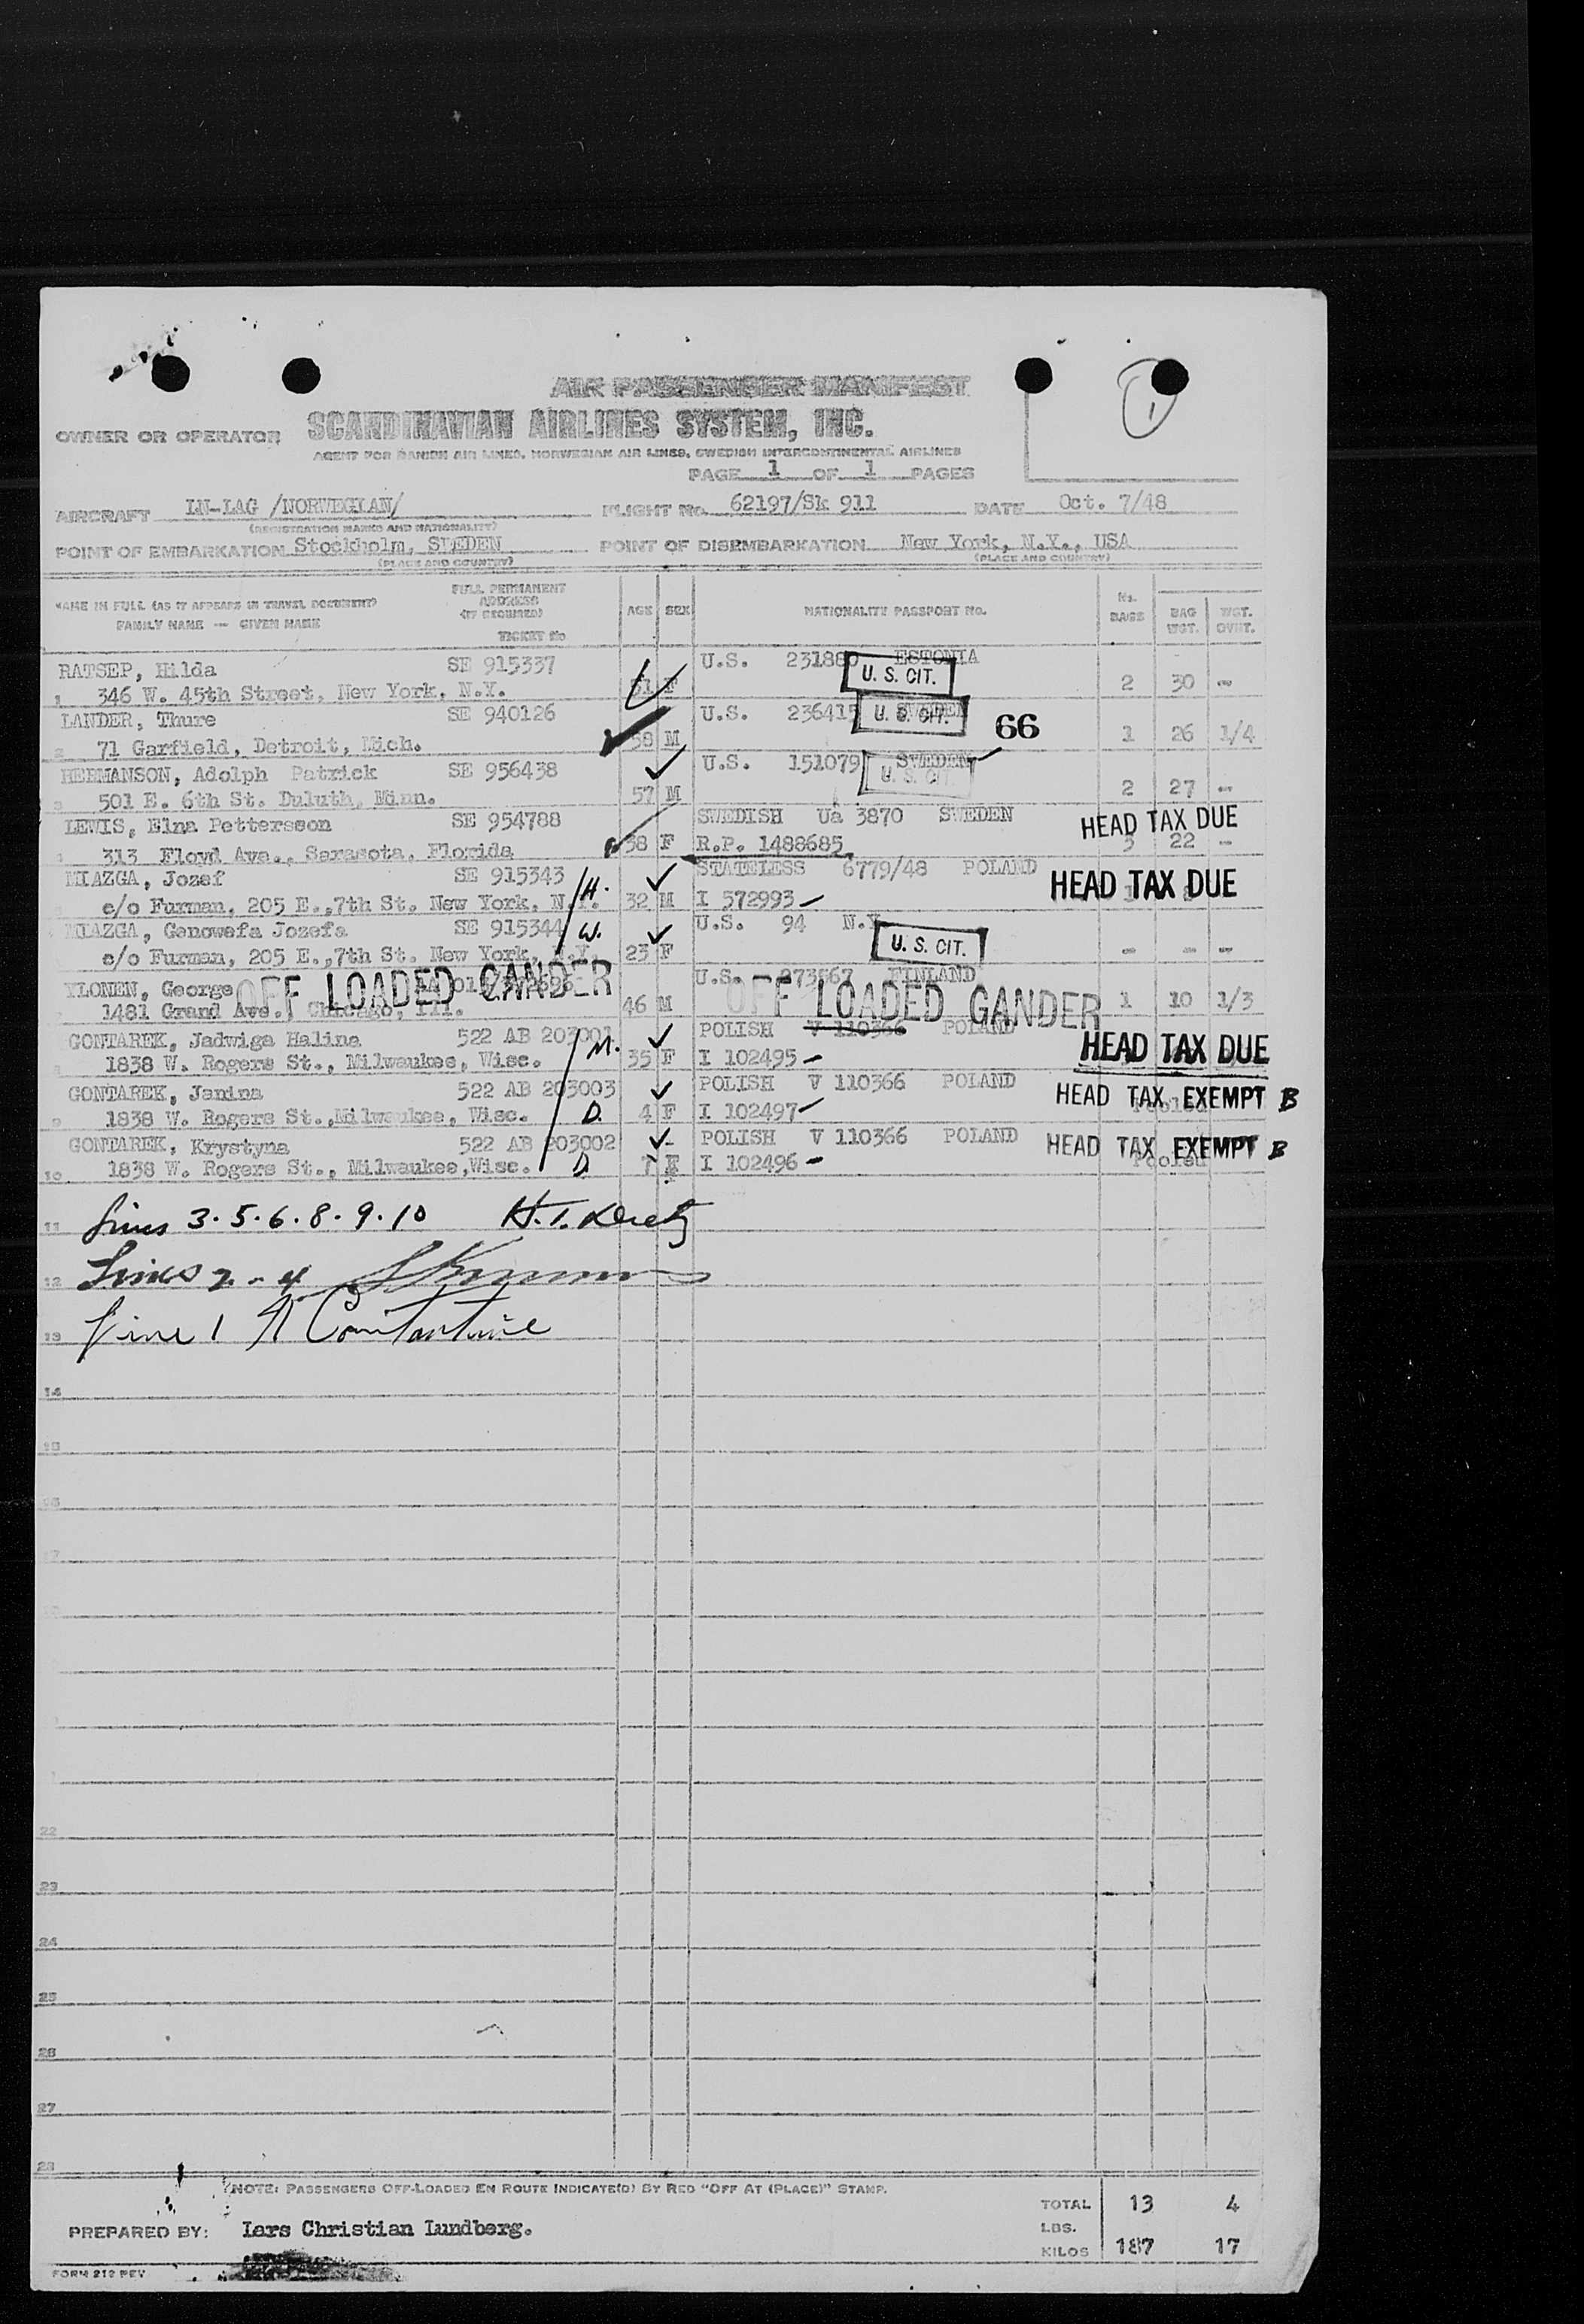 AIR PASSENGER MANIFEST
1
OWNER OR OPERATOR SCANDINAVIAN AIRLINES SYSTEM, INC.
AGENT FOR DANISH AIR LINES, NORWEGIAN AIR LINES, SWEDISH INTERCONTINENTAL AIRLINES
PAGE 1 OF 1 PAGES
AIRCRAFT LN-LAG /NORWEGIAN/ FLIGHT No. 62197/Sk 911 DATE Oct. 7/48
(REGISTRATION MARKS AND NATIONALITY)
POINT OF EMBARKATION Stockholm, SWEDEN POINT OF DISEMBARKATION New York, N.Y., USA
(PLACE AND COUNTRY) (PLACE AND COUNTRY)
NAME IN FULL (AS IT APPEARS IN TRAVEL DOCUMENT)
FAMILY NAME — GIVEN NAME
FULL PERMANENT
ADDRESS
(IF REQUIRED)
TICKET No
AGE SEX NATIONALITY PASSPORT NO. No. BAGS BAG WGT. WGT. OVHT.
RATSEP, Hilda SE 915337 U.S. 231880 ESTONIA
U. S. CIT.
1 346 W. 45th Street, New York, N.Y. 51 F 2 30 -
LANDER, Thure SE 940126 U.S. 236415 SWEDEN
U. S. CIT. 66
2 71 Garfield, Detroit, Mich. 58 M 1 26 1/4
HERMANSON, Adolph Patrick SE 956438 U.S. 151079 SWEDEN
U. S. CIT.
3 501 E. 6th St. Duluth, Minn. 57 M 2 27 -
LEWIS, Elna Pettersson SE 954788 SWEDISH Ua 3870 SWEDEN
HEAD TAX DUE
4 313 Floyd Ave., Sarasota, Florida 38 F R.P. 1488685 22 -
MIAZGA, Jozef SE 915343 STATELESS 6779/48 POLAND
HEAD TAX DUE
c/o Furman, 205 E.,7th St. New York, N.Y. H. 32 M I 572993
MIAZGA, Genowefa Jozefa SE 915344 U.S. 94 N.Y.
U. S. CIT.
c/o Furman, 205 E.,7th St. New York, N.Y. W. 23 F - - -
YLONEN, George U.S. 873567 FINLAND
OFF LOADED GANDER OFF LOADED GANDER
1481 Grand Ave., Chicago, Ill. 46 M 1 10 1/3
GONTAREK, Jadwiga Halina 522 AB 203001 POLISH V 110366 POLAND
HEAD TAX DUE
1838 W. Rogers St., Milwaukee, Wisc. M. 35 F I 102495
GONTAREK, Janina 522 AB 203003 POLISH V 110366 POLAND
HEAD TAX EXEMPT B
9 1838 W. Rogers St.,Milwaukee, Wisc. D. 4 F I 102497 Pooled
GONTAREK, Krystyna 522 AB 203002 POLISH V 110366 POLAND
HEAD TAX EXEMPT B
10 1838 W. Rogers St., Milwaukee,Wisc. D 7 F I 102496 Pooled
11 Lines 3.5.6.8.9.10
12 Lines 2-4
13 Line 1
14
15
16
17
22
23
24
25
26
27
28
NOTE: PASSENGERS OFF-LOADED EN ROUTE INDICATE(D) BY RED "OFF AT (PLACE)" STAMP.
TOTAL 13 4
LBS.
KILOS 187 17
PREPARED BY: Lars Christian Lundberg.
FORM 212 REV